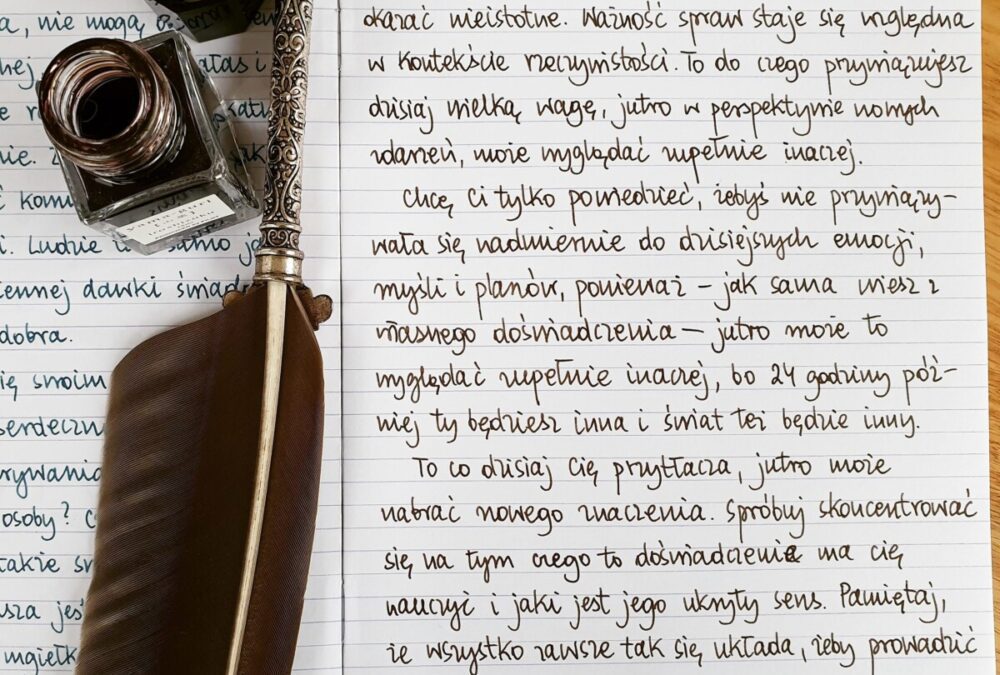 a, nie mogą
nej
nie.
ć
i. Ludzie
ennej dawki
dobra.
ię swoim
serdeczn
rywania
osoby?
takie
sza jes
mgiełk
okazać nieistotne. Ważność spraw staje się względna
w kontekście rzeczywistości. To do czego przywiązujesz
dzisiaj wielką wagę, jutro w perspektywie nowych
zdarzeń, może wyglądać zupełnie inaczej.
Chcę Ci tylko powiedzieć, żebyś nie przywiązy-
wała się nadmiernie do dzisiejszych emocji,
myśli i planów, ponieważ – jak sama wiesz z
własnego doświadczenia – jutro może to
wyglądać zupełnie inaczej, bo 24 godziny póź-
niej ty będziesz inna i świat też będzie inny.
To co dzisiaj Cię przytłacza, jutro może
nabrać nowego znaczenia. Spróbuj skoncentrować
się na tym czego to doświadczenie ma cię
nauczyć i jaki jest jego ukryty sens. Pamiętaj,
że wszystko zawsze tak się układa, żeby prowadzić